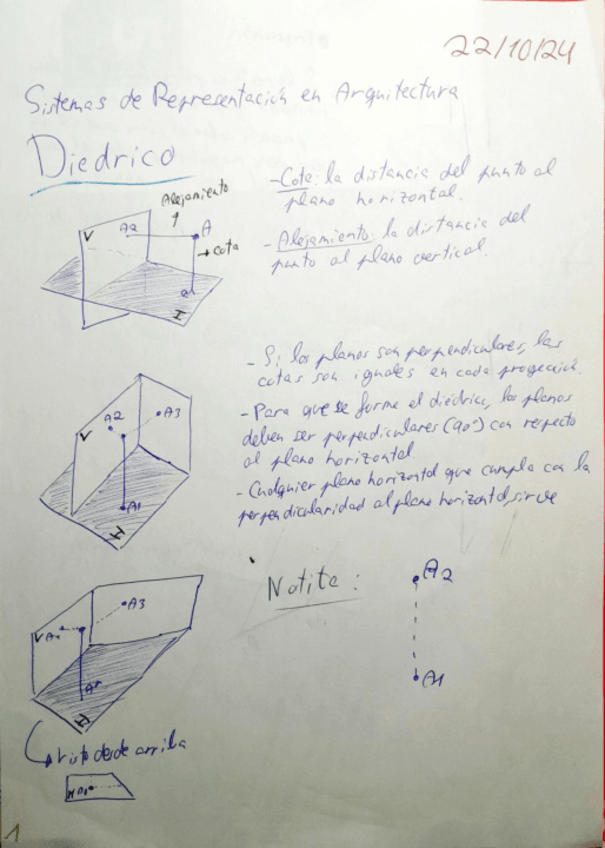 22/10/24
Sistemas de Representación en Arquitectura
Diedrico
- Cota: la distancia del punto al
plano horizontal.
- Alejamiento: la distancia del
punto al plano vertical.
Alejamiento
V
A2
A
→ cota
a
I
- Si los planos son perpendiculares, las
cotas son iguales en cada proyección.
- Para que se forme el diédrico, los planos
deben ser perpendiculares (90°) con respecto
al plano horizontal
- Cualquier plano horizontal que cumpla con la
perpendicularidad al plano horizontal, sirve
A2
A3
V
A1
I
Notita:
A2
A1
A3
V
I
Visto desde arriba
1